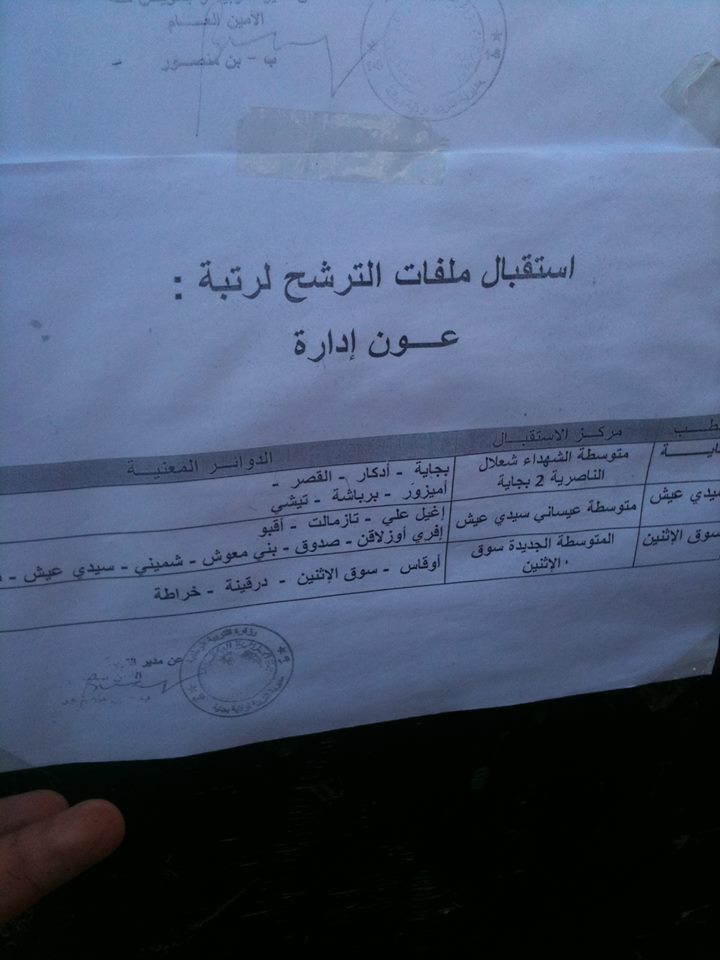 الامين العــام
ب - بن منصـور -
استقبال ملفات الترشح لرتبة :
عـــون إدارة
مركز الاستقبال
الدوائر المعنية
متوسطة الشهداء شعلال
الناصرية 2 بجاية
بجاية - أدكار - القصر -
أميزور - برباشة - تيشي
سيدي عيش
متوسطة عيساني سيدي عيش
إغيل علي - تازمالت - أقبو
إفري أوزلاقن - صدوق - بني معوش - شميني - سيدي عيش -
سوق الإثنين
المتوسطة الجديدة سوق
الإثنين
أوقاس - سوق الإثنين - درقينة - خراطة
عن مدير